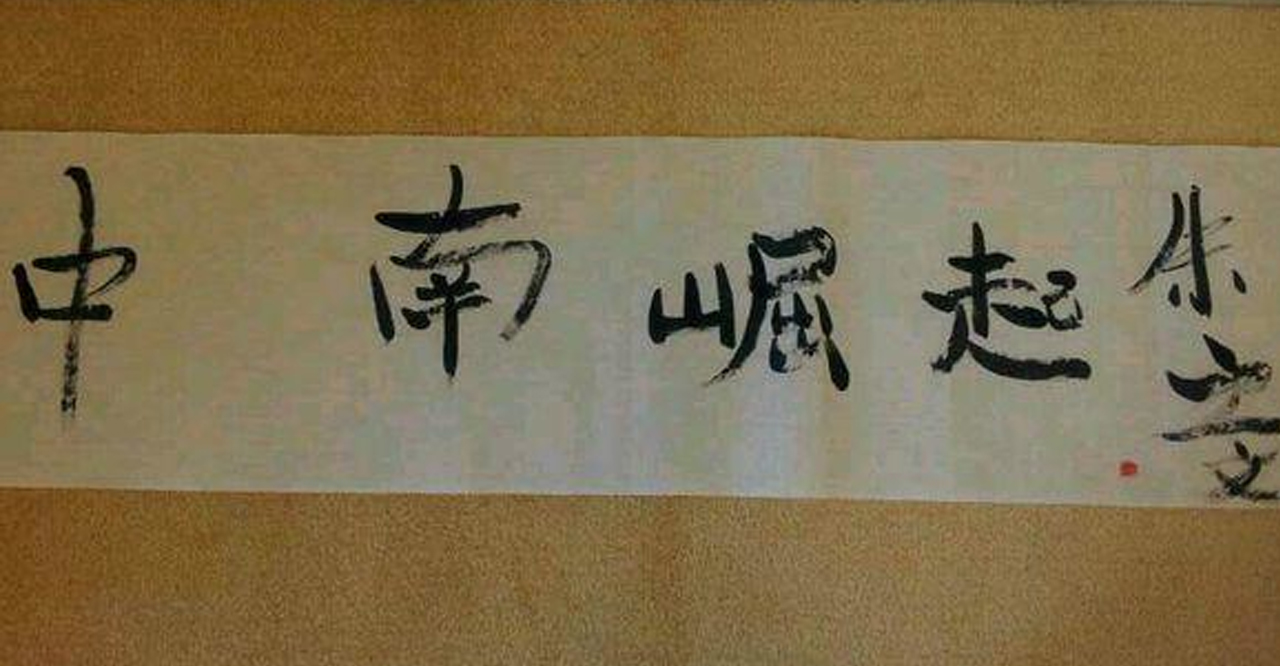 中南崛起
朱
文